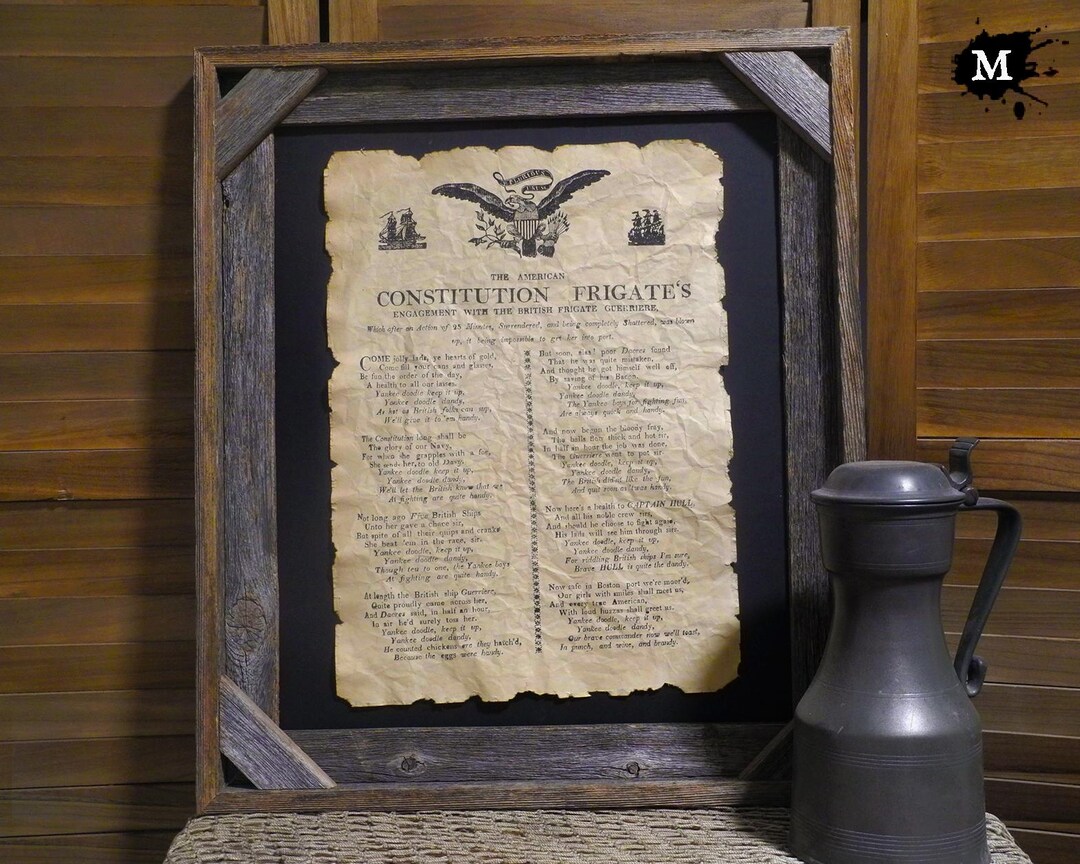 M
E PLURIBUS
UNUM
THE AMERICAN
CONSTITUTION FRIGATE'S
ENGAGEMENT WITH THE BRITISH FRIGATE GUERRIERE,
Which after an Action of 25 Minutes, Surrendered, and being completely Shattered, was blown
up, it being impossible to get her into port.
COME jolly lads, ye hearts of gold,
Come fill your cans and glasses,
Be fun the order of the day,
A health to all our lasses.
Yankee doodle keep it up,
Yankee doodle dandy,
As hot as British folks can sup,
We'll give it to 'em handy.
The Constitution long shall be
The glory of our Navy,
For when she grapples with a foe,
She sends her to old Davy.
Yankee doodle, keep it up,
Yankee doodle dandy,
We'll let the British know that we
At fighting are quite handy.
Not long ago Five British Ships
Unto her gave a chace sir,
But spite of all their quips and cranks
She beat 'em in the race, sir.
Yankee doodle, keep it up,
Yankee doodle dandy,
Though ten to one, the Yankee boys
At fighting are quite handy.
At length the British ship Guerriere,
Quite proudly came across her,
And Dacres said, in half an hour,
In air he'd surely toss her.
Yankee doodle, keep it up,
Yankee doodle dandy,
He counted chickens ere they hatch'd,
Because the eggs were handy.
But soon, alas! poor Dacres found
That he was quite mistaken,
And thought he got himself well off,
By saving of his Bacon.
Yankee doodle, keep it up,
Yankee doodle dandy,
The Yankee boys for fighting fun,
Are always quick and handy.
And now began the bloody fray,
The balls flew thick and hot sir,
In half an hour the job was done,
The Guerriere went to pot sir.
Yankee doodle, keep it up,
Yankee doodle dandy,
The British did not like the fun,
And quit soon as it was handy.
Now here's a health to CAPTAIN HULL,
And all his noble crew sirs,
And should he choose to fight again,
His lads will see him through sirs.
Yankee doodle, keep it up,
Yankee doodle dandy,
For riddling British ships I'm sure,
Brave HULL is quite the dandy.
Now safe in Boston port we're moor'd,
Our girls with smiles shall meet us,
And every true American,
With loud huzzas shall greet us.
Yankee doodle, keep it up,
Yankee doodle dandy,
Our brave commander now we'll toast,
In punch, and wine, and brandy.